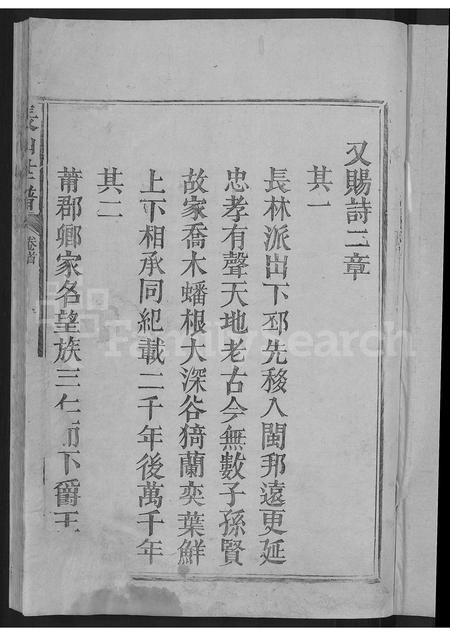 又賜詩二章
其一
長林派出下邳先移入閩邦遠更延
忠孝有聲天地老古今無數子孫賢
故家喬木蟠根大深谷猗蘭奕葉鮮
上下相承同紀載二千年後萬千年
其二
莆郡鄉家名望族三仁 下爵王
長山世譜
卷首
FamilySearch